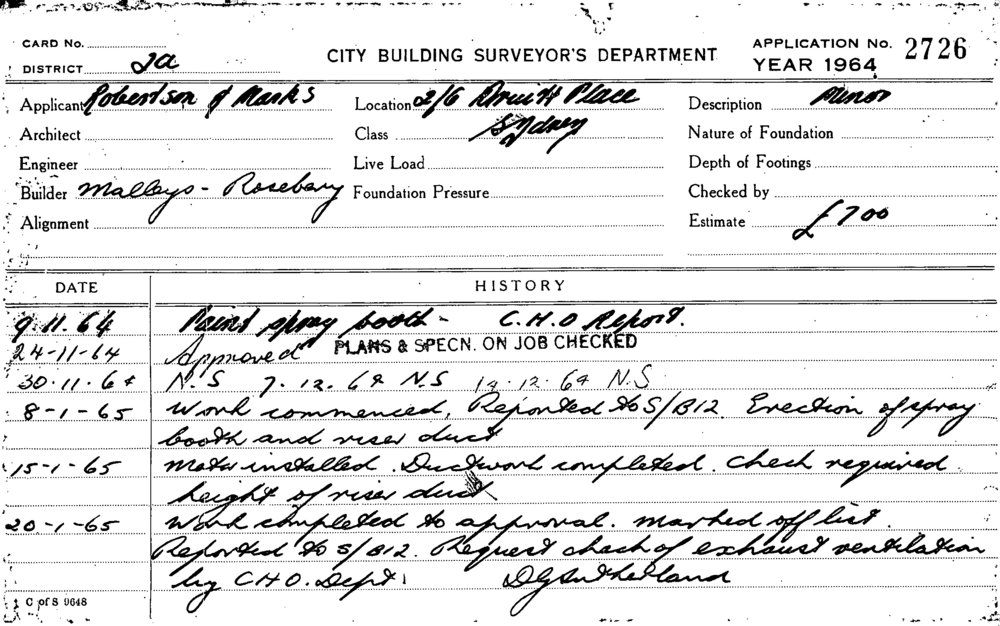 CARD No.
DISTRICT 2a
CITY BUILDING SURVEYOR'S DEPARTMENT
APPLICATION No. 2726
YEAR 1964
Applicant Robertson & Marks
Location 2/6 Druitt Place
Sydney
Description Minor
Architect
Class
Nature of Foundation
Engineer
Live Load
Depth of Footings
Builder Malleys - Rosebery
Foundation Pressure
Checked by
Alignment
Estimate £700
DATE
HISTORY
9.11.64 Paint spray booth - C.H.O Report.
24-11-64 Approved PLANS & SPECN. ON JOB CHECKED
30.11.64 N.S 7.12.64 N.S 14.12.64 N.S
8-1-65 Work commenced, Reported to S/B12. Erection of spray
booth and riser duct
15-1-65 Motor installed. Ductwork completed. Check required
height of riser duct
20-1-65 Work completed to approval. Marked off list.
Reported to S/B12. Request check of exhaust ventilation
by C.H.O. Dept. DGSutherland
C of S 9648